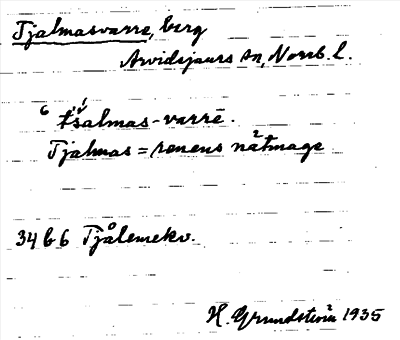 Tjalmasvarre, berg
Arvidsjaurs sn, Norrb. l.
6 tšalmas-varrē.
Tjalmas = renens nätmage
34 b 6 Tjålmekv.
H. Grundström 1935